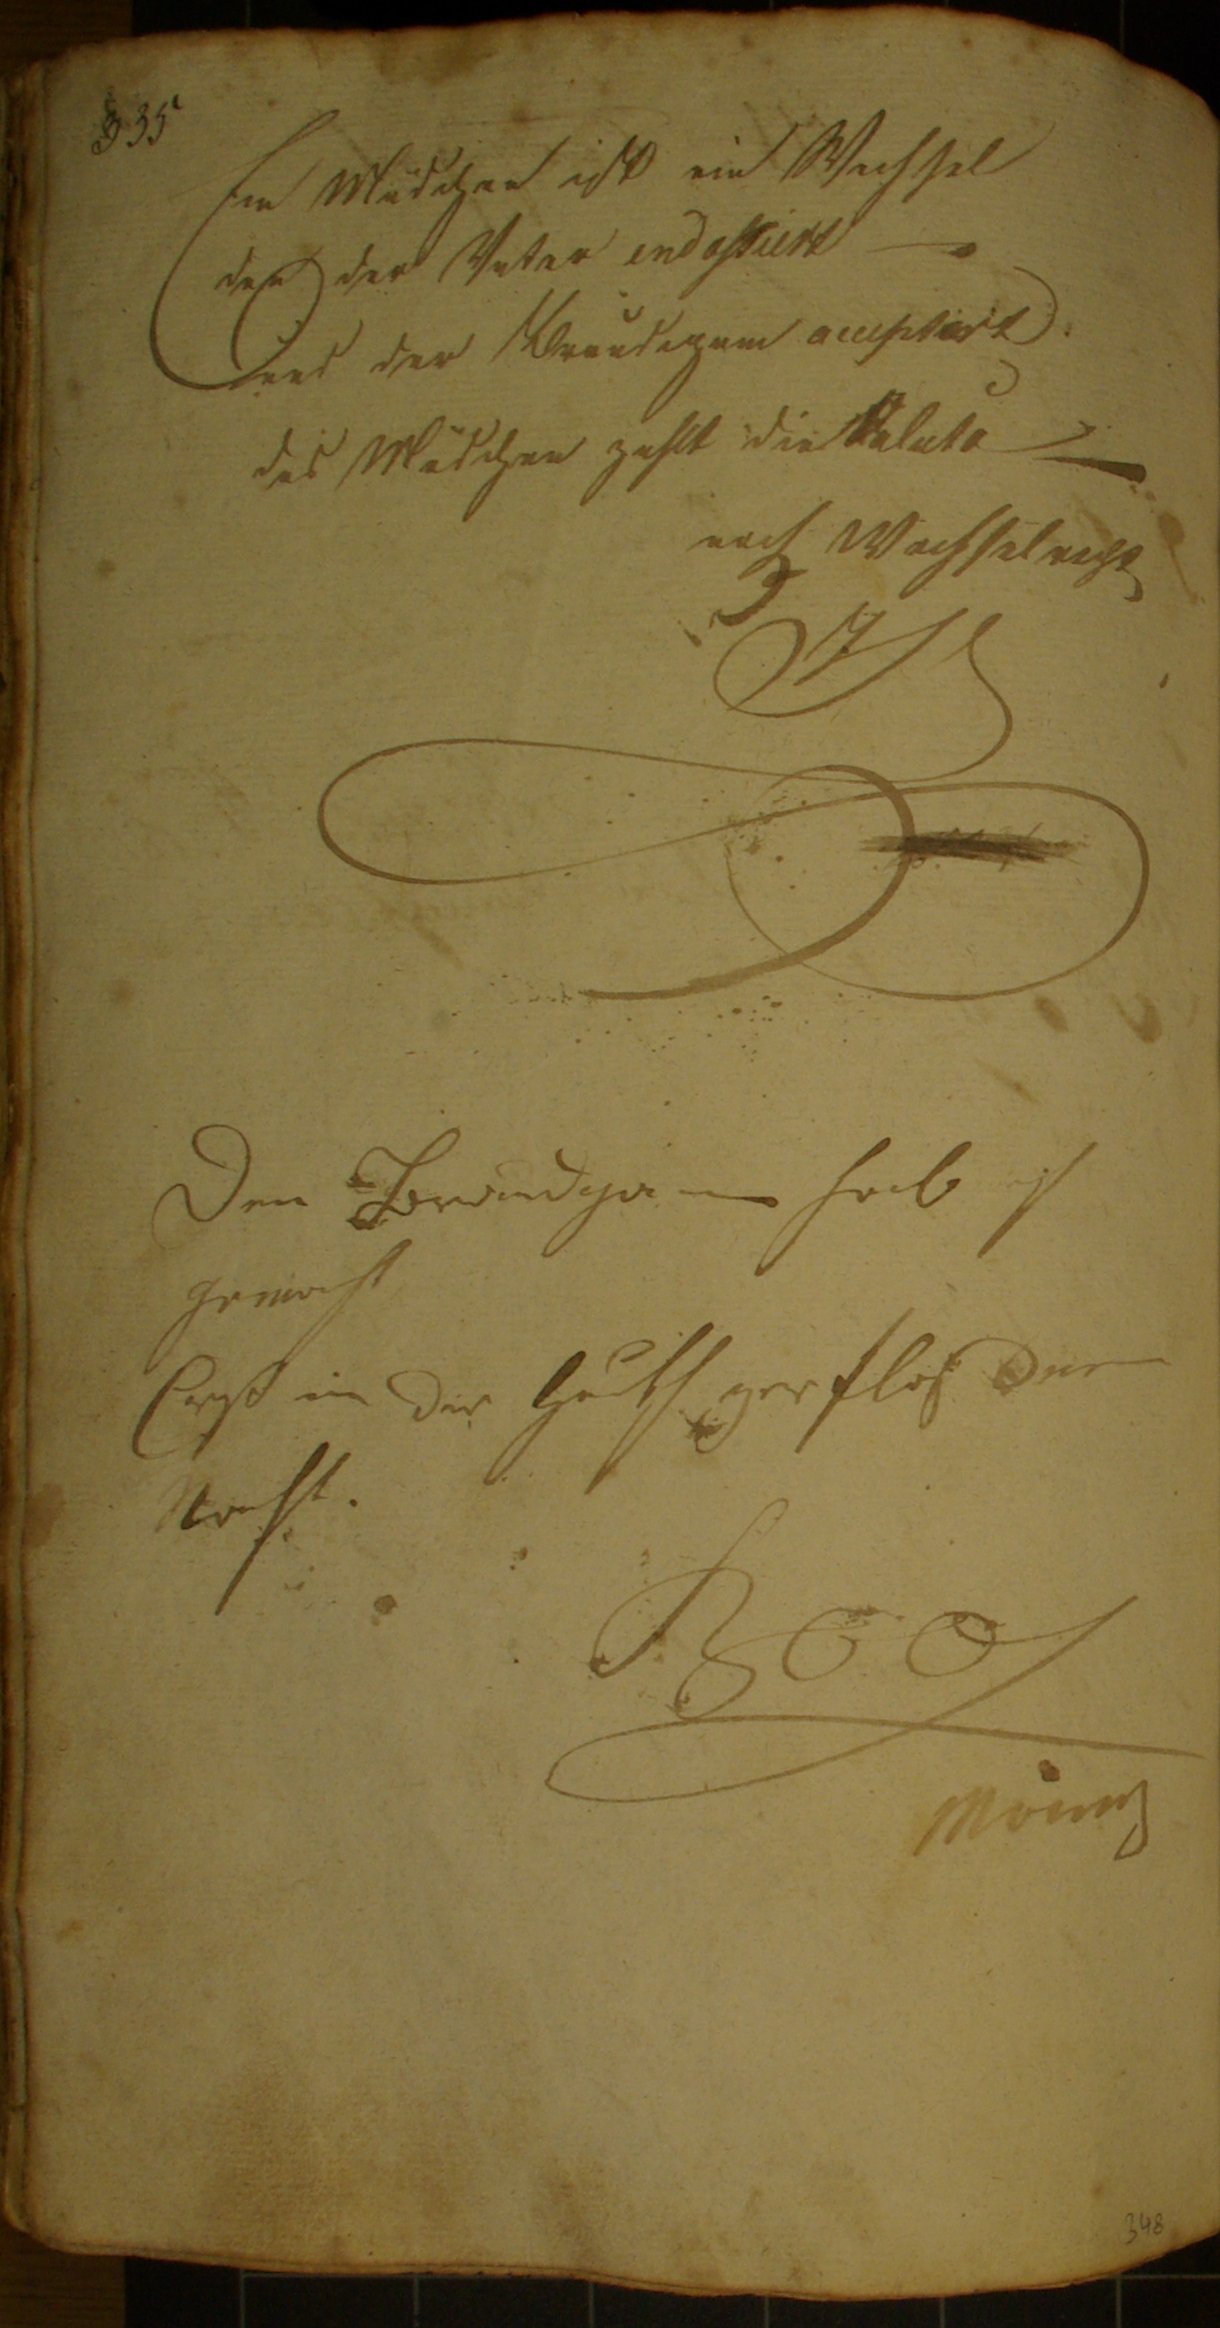 335
Ein Mädchen ist ein Wechsel
den der Vater endossiert
und der Bräudigam acceptirt
das Mädchen zahlt die Valuta
nach Wechselrecht
Den Bräudgam hab ich
gemacht
Erst in der
Nacht.
348